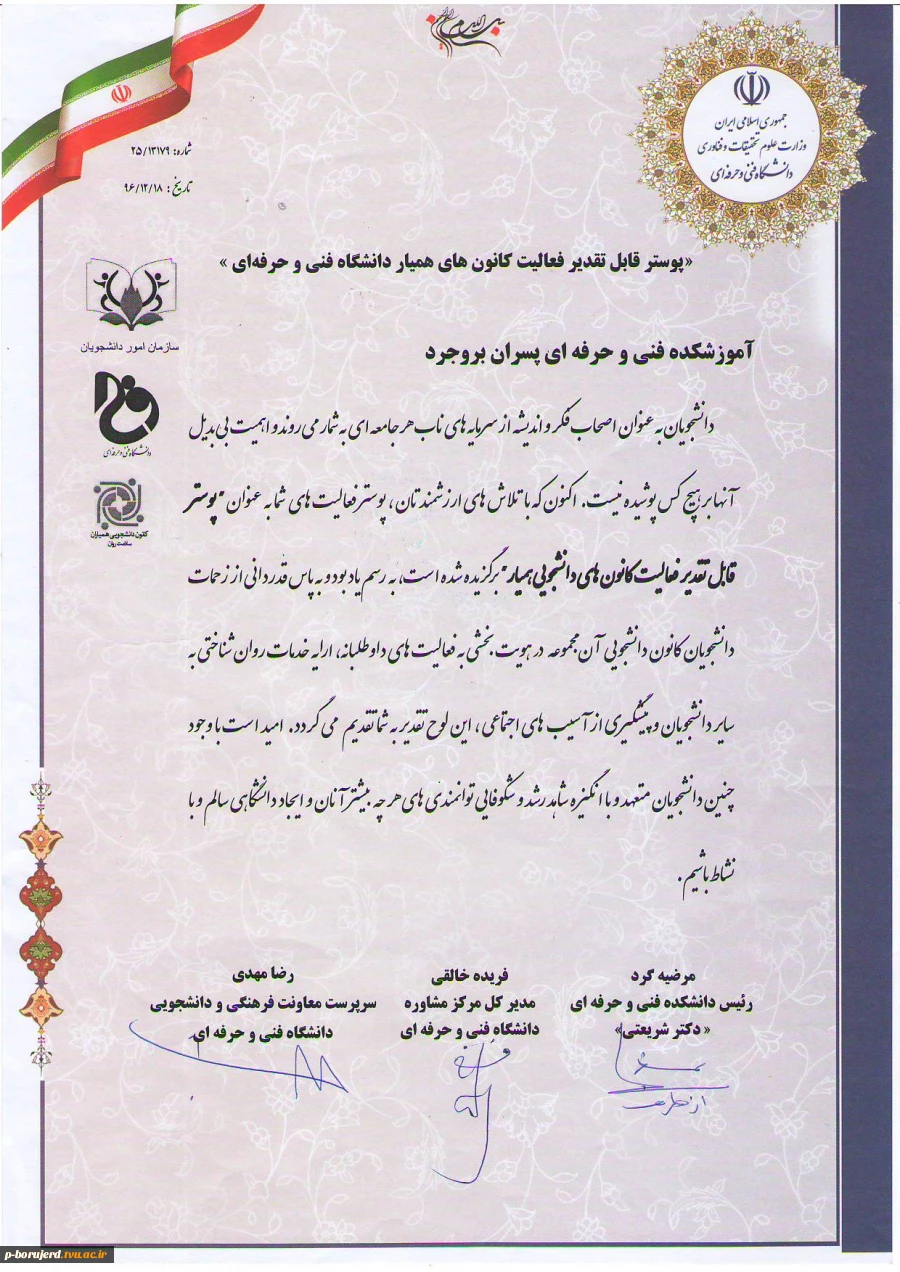 جمهوری اسلامی ایران
وزارت علوم تحقیقات و فناوری
دانشگاه فنی و حرفه‌ای
شماره: ۲۵/۱۳۱۷۹
تاریخ: ۹۶/۱۲/۱۸
«پوستر قابل تقدیر فعالیت کانون های همیار دانشگاه فنی و حرفه‌ای »
سازمان امور دانشجویان
دانشگاه فنی و حرفه‌ای
کانون دانشجویی همیاران
سلامت روان
آموزشکده فنی و حرفه ای پسران بروجرد
دانشجویان به عنوان اصحاب فکر و اندیشه از سرمایه های ناب هر جامعه ای به شمار می روند و اهمیت بی بدیل
آنها بر هیچ کس پوشیده نیست. اکنون که با تلاش های ارزشمندتان، پوستر فعالیت های شما به عنوان "پوستر
قابل تقدیر فعالیت کانون های دانشجویی همیار" برگزیده شده است، به رسم یادبود و به پاس قدردانی از زحمات
دانشجویان کانون دانشجویی آن مجموعه در هویت بخشی به فعالیت های داوطلبانه، ارایه خدمات روان شناختی به
سایر دانشجویان و پیشگیری از آسیب های اجتماعی، این لوح تقدیر به شما تقدیم می گردد. امید است با وجود
چنین دانشجویان متعهد و با انگیزه شاهد رشد و شکوفایی توانمندی های هر چه بیشتر آنان و ایجاد دانشگاهی سالم و با
نشاط باشیم.
مرضیه گرد
رئیس دانشکده فنی و حرفه ای
« دکتر شریعتی»
فریده خالقی
مدیر کل مرکز مشاوره
دانشگاه فنی و حرفه ای
رضا مهدی
سرپرست معاونت فرهنگی و دانشجویی
دانشگاه فنی و حرفه ای
p-borujerd.tvu.ac.ir